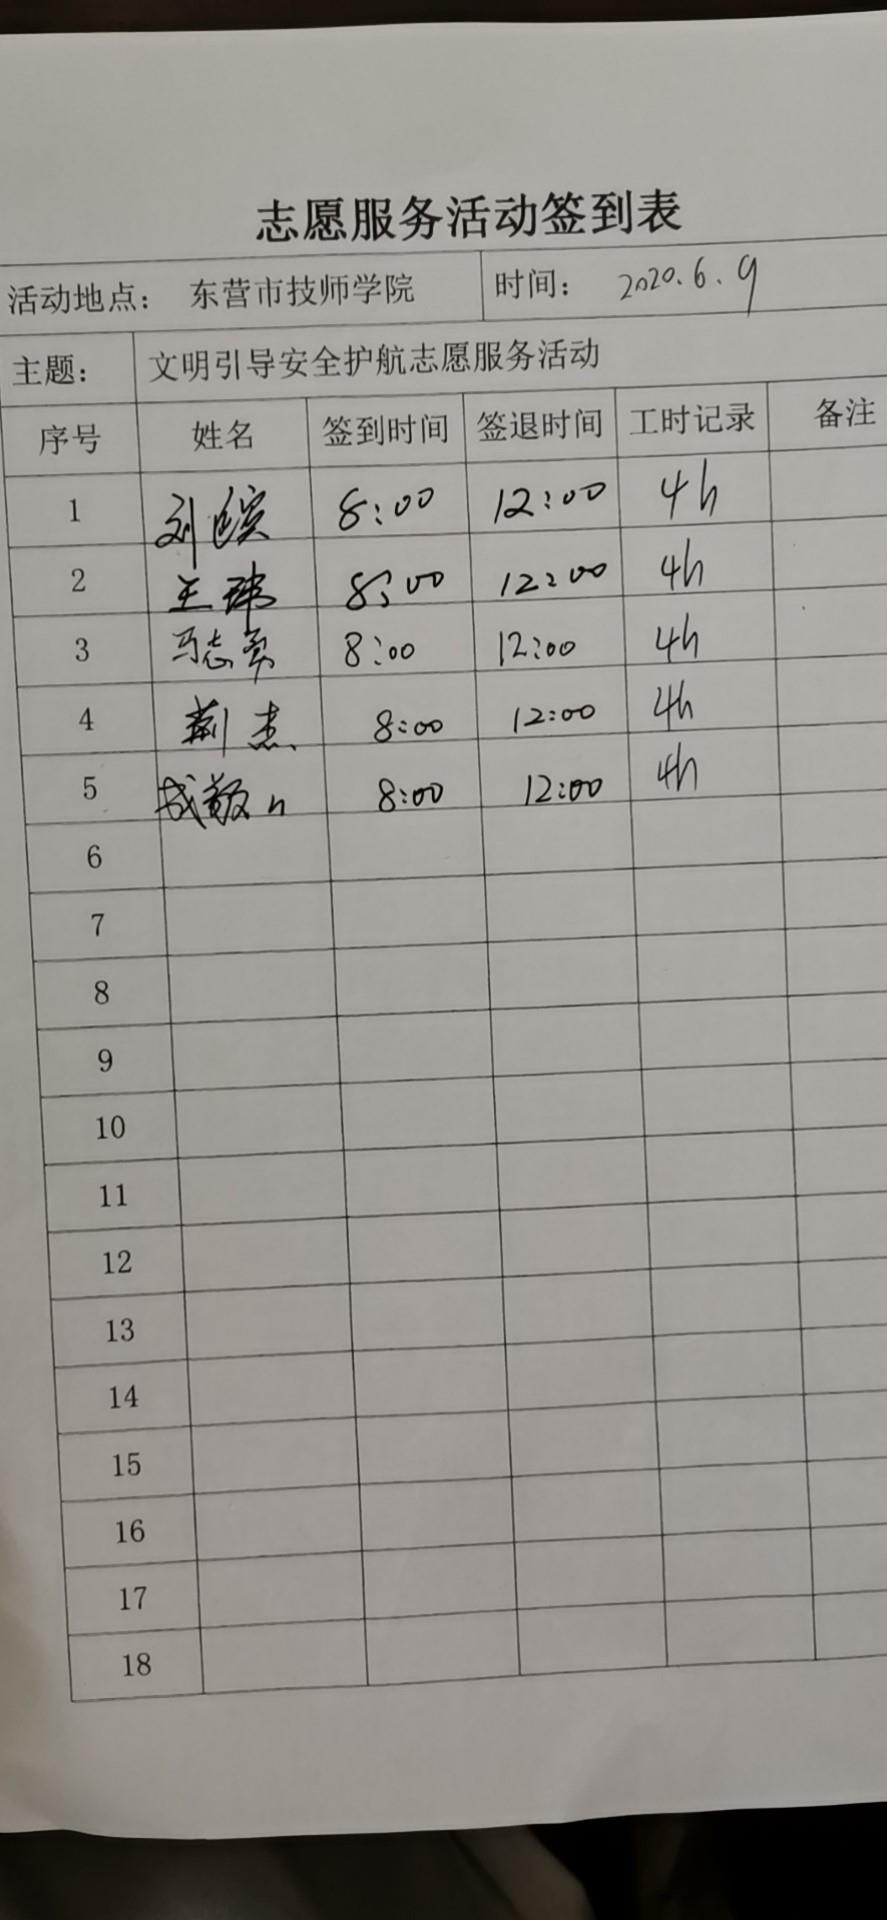 志愿服务活动签到表
活动地点： 东营市技师学院 时间： 2020.6.9
主题： 文明引导安全护航志愿服务活动
序号 姓名 签到时间 签退时间 工时记录 备注
1 刘 8:00 12:00 4h
2 王玮 8:00 12:00 4h
3 马志勇 8:00 12:00 4h
4 荆杰 8:00 12:00 4h
5 8:00 12:00 4h
6
7
8
9
10
11
12
13
14
15
16
17
18